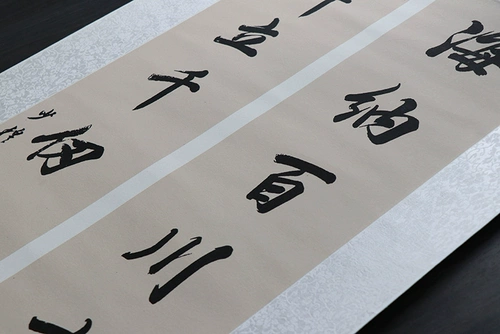 海纳百川
立千仞